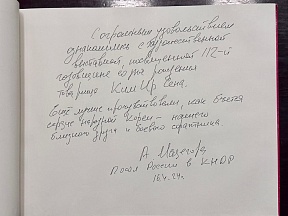 С огромным удовольствием
ознакомились с художественной
выставкой, посвященной 112-й
годовщине со дня рождения
товарища Ким Ир Сена.
Ещё лучше прочувствовали, как бьется
сердце народной Кореи – нашего
близкого друга и боевого соратника
А Мацегора
Посол России в КНДР
16.4.24г.